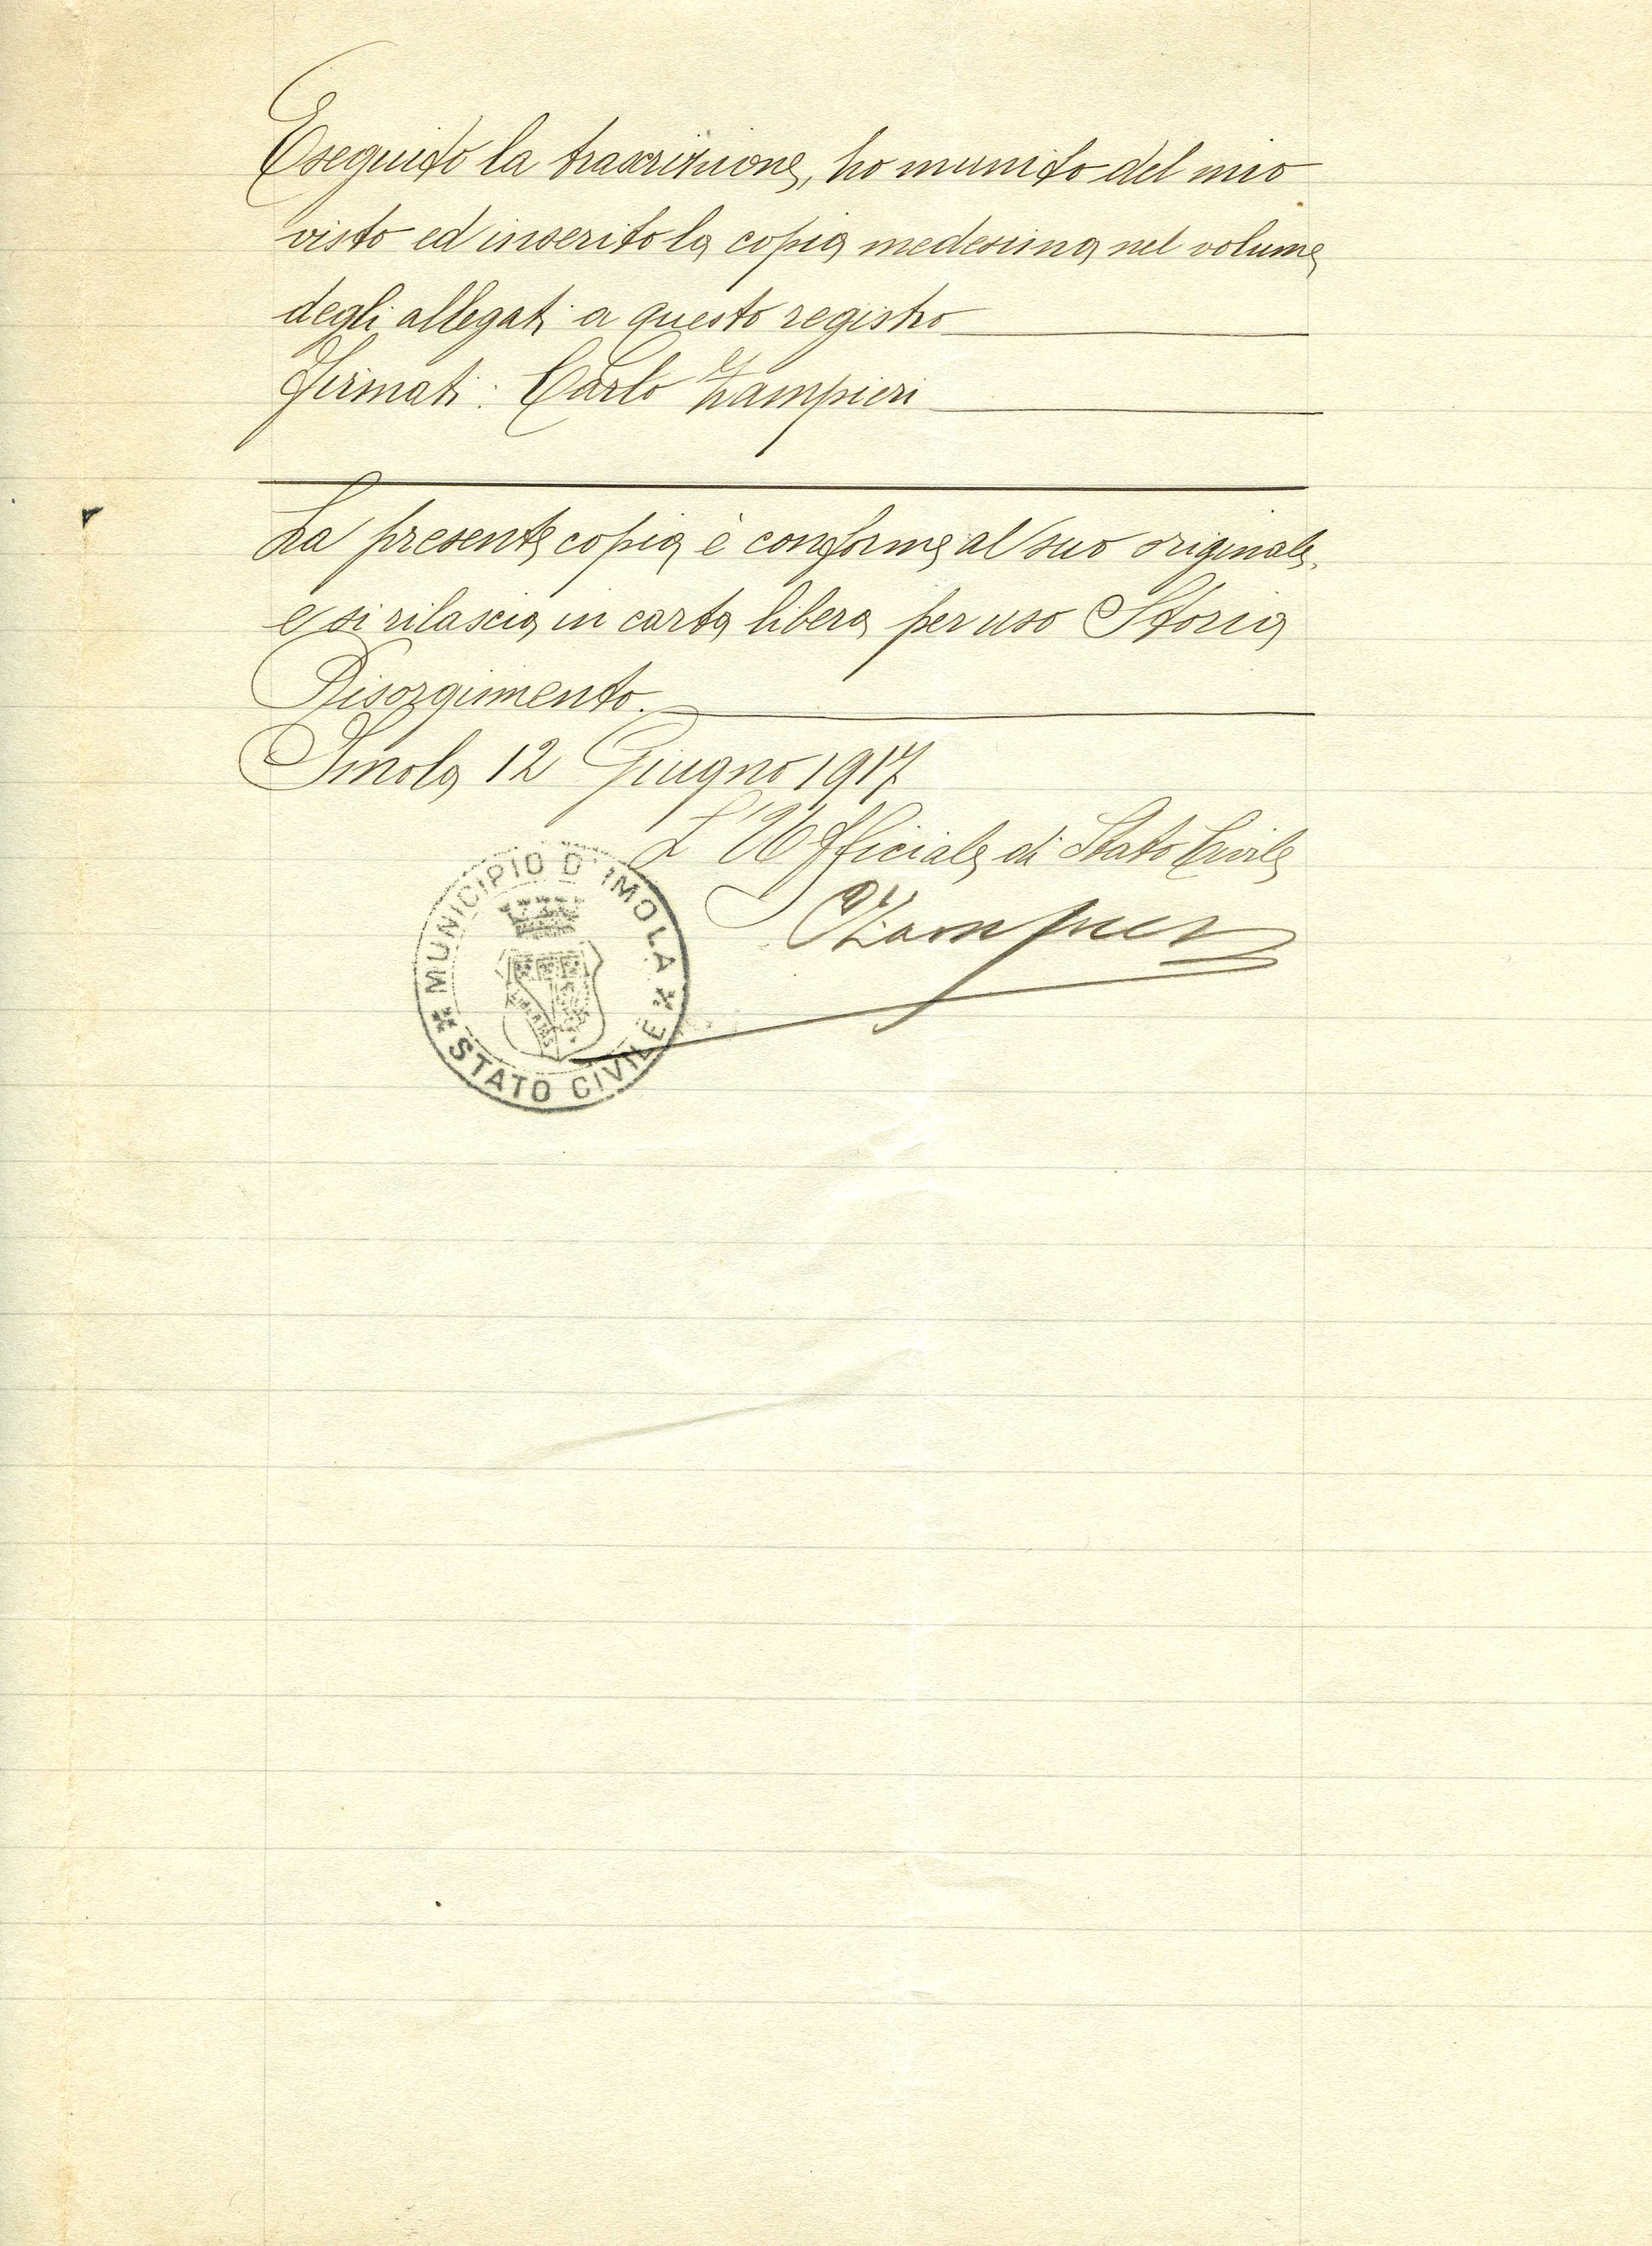 Eseguito la trascrizione, ho munito del mio
visto ed inserito la copia medesima nel volume
degli allegati a questo registro
firmati: Carlo Zampieri
La presente copia è conforme al suo originale,
e si rilascia in carta libera per uso Storia
Risorgimento.
Imola 12 Giugno 1917
L'Ufficiale di Stato Civile
Zampieri
MUNICIPIO D'IMOLA
STATO CIVILE